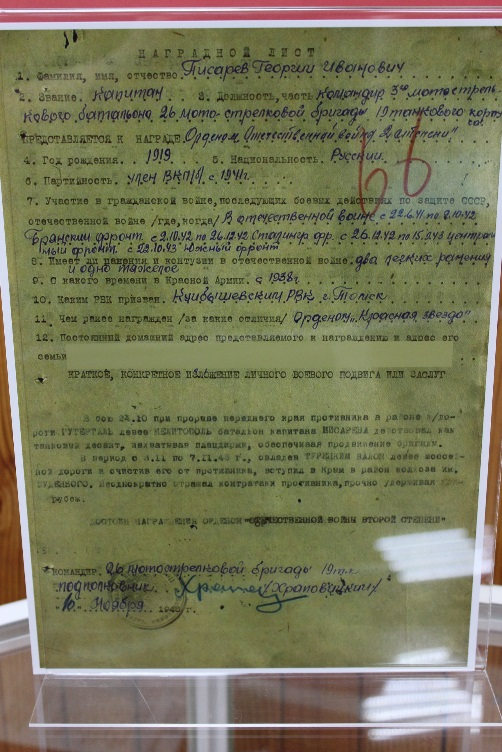 НАГРАДНОЙ ЛИСТ
1. Фамилия, имя, отчество Писарев Георгий Иванович
2. Звание. капитан 3. Должность, часть командир 3го мотострел-
кового батальона 26 мото-стрелковой бригады 19 танкового корпуса
ПРЕДСТАВЛЯЕТСЯ К НАГРАДЕ Орденом „Отечественной войны II степени"
4. Год рождения. 1919 5. Национальность. Русский.
66
6. Партийность. член ВКП/б с 1941г.
7. Участие в гражданской войне, последующих боевых действиях по защите СССР,
отечественной войне /где, когда/ В отечественной войне с 22.6.41 по 2.10.42
Брянский фронт. с 2.10.42 по 26.12.42 Сталингр. фр. с 26.12.42 по 15.9.43 централь
ный фронт. с 22.10.43 Южный фронт
8. Имеет ли ранения и контузии в отечественной войне. два легких ранения
и одно тяжелое
9. С какого времени в Красной Армии. с 1938г.
10. Каким РВК призван. Куйбышевским РВК г. Томск
11. Чем ранее награжден /за какие отличия/ Орденом „Красная звезда"
12. Постоянный домашний адрес представляемого к награждению и адрес его
семьи
КРАТКОЕ, КОНКРЕТНОЕ ИЗЛОЖЕНИЕ ЛИЧНОГО БОЕВОГО ПОДВИГА ИЛИ ЗАСЛУГ
В бою 24.10 при прорыве переднего края противника в районе ж/до-
роги ГУТЕРТАЛЬ левее МЕЛИТОПОЛЬ батальон капитана ПИСАРЕВА действовал как
танковый десант, захватывая плацдармы, обеспечивая продвижение бригады.
В период с 3.11 по 7.11.43 г., овладев ТУРЕЦКИМ ВАЛОМ левее шоссей-
ной дороги и очистив его от противника, вступил в Крым в район колхоза им.
БУДЕННОГО. Неоднократно отражал контратаки противника, прочно удерживая
ДОСТОИН НАГРАЖДЕНИЯ ОРДЕНОМ "ОТЕЧЕСТВЕННОЙ ВОЙНЫ ВТОРОЙ СТЕПЕНИ"
КОМАНДИР. 26 мотострелковой бригады 19 т.к.
подполковник /Храповицкий/
10 Ноября 1943 г.